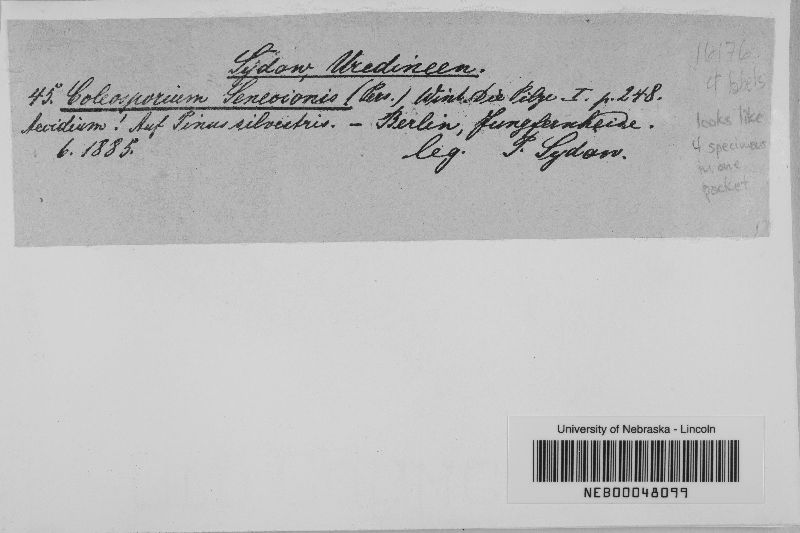 Sydow, Uredineen.
45. Coleosporium Senecionis (Pers.) Wint. Die Pilze. I. p. 248.
Aecidium! Auf Pinus silvestris. – Berlin, Jungfernheide.
6. 1885. leg. P. Sydow.
16176
4 labels
looks like
4 specimens
in one
packet
University of Nebraska - Lincoln
NEB00048099